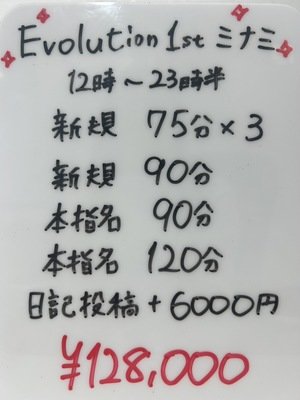 Evolution 1st ミナミ
12時～23時半
新規 75分×3
新規 90分
本指名 90分
本指名 120分
日記投稿+6000円
¥128,000